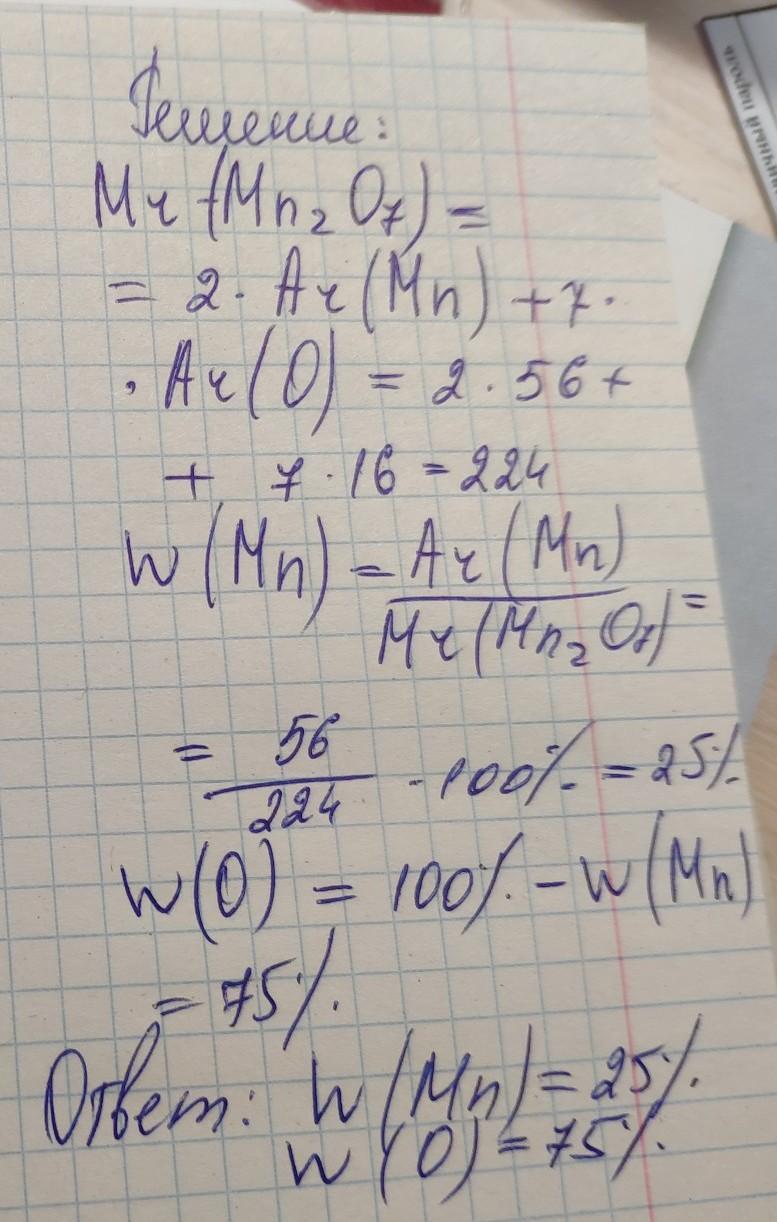 Решение:
Mr (Mn₂O₇) =
= 2 · Ar (Mn) + 7 ·
· Ar (O) = 2 · 56 +
+ 7 · 16 = 224
W (Mn) = Ar (Mn)
Mr (Mn₂O₇) =
= 56
224 · 100% = 25%
W (O) = 100% - W (Mn)
= 75%
Ответ: W (Mn) = 25%
W (O) = 75%
пароль